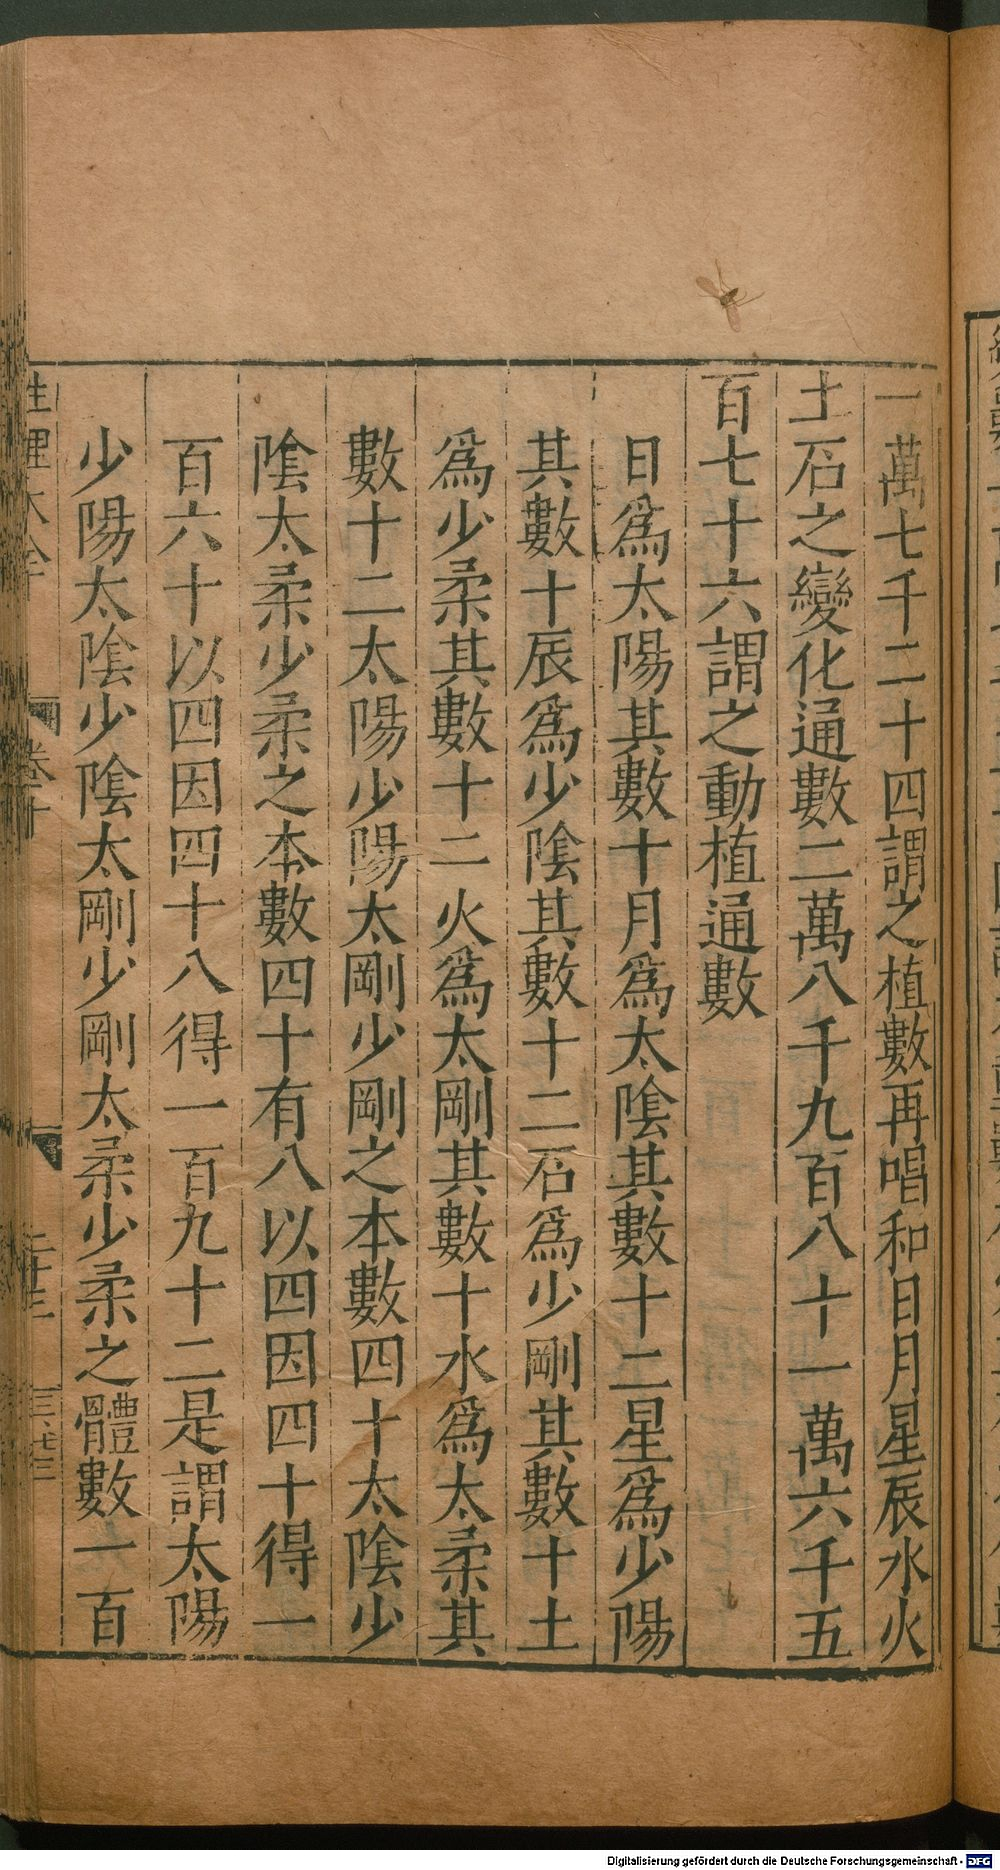 一萬七千二十四謂之植數再唱和日月星辰水火
土石之變化通數二萬八千九百八十一萬六千五
百七十六謂之動植通數
日爲太陽其數十月爲太陰其數十二星爲少陽
其數十辰爲少陰其數十二石爲少剛其數十土
爲少柔其數十二火爲太剛其數十水爲太柔其
數十二太陽少陽太剛少剛之本數四十太陰少
陰太柔少柔之本數四十有八以四因四十得一
百六十以四因四十八得一百九十二是謂太陽
少陽太陰少陰太剛少剛太柔少柔之體數一百
性理大全
卷十
Digitalisierung gefördert durch die Deutsche Forschungsgemeinschaft - DFG